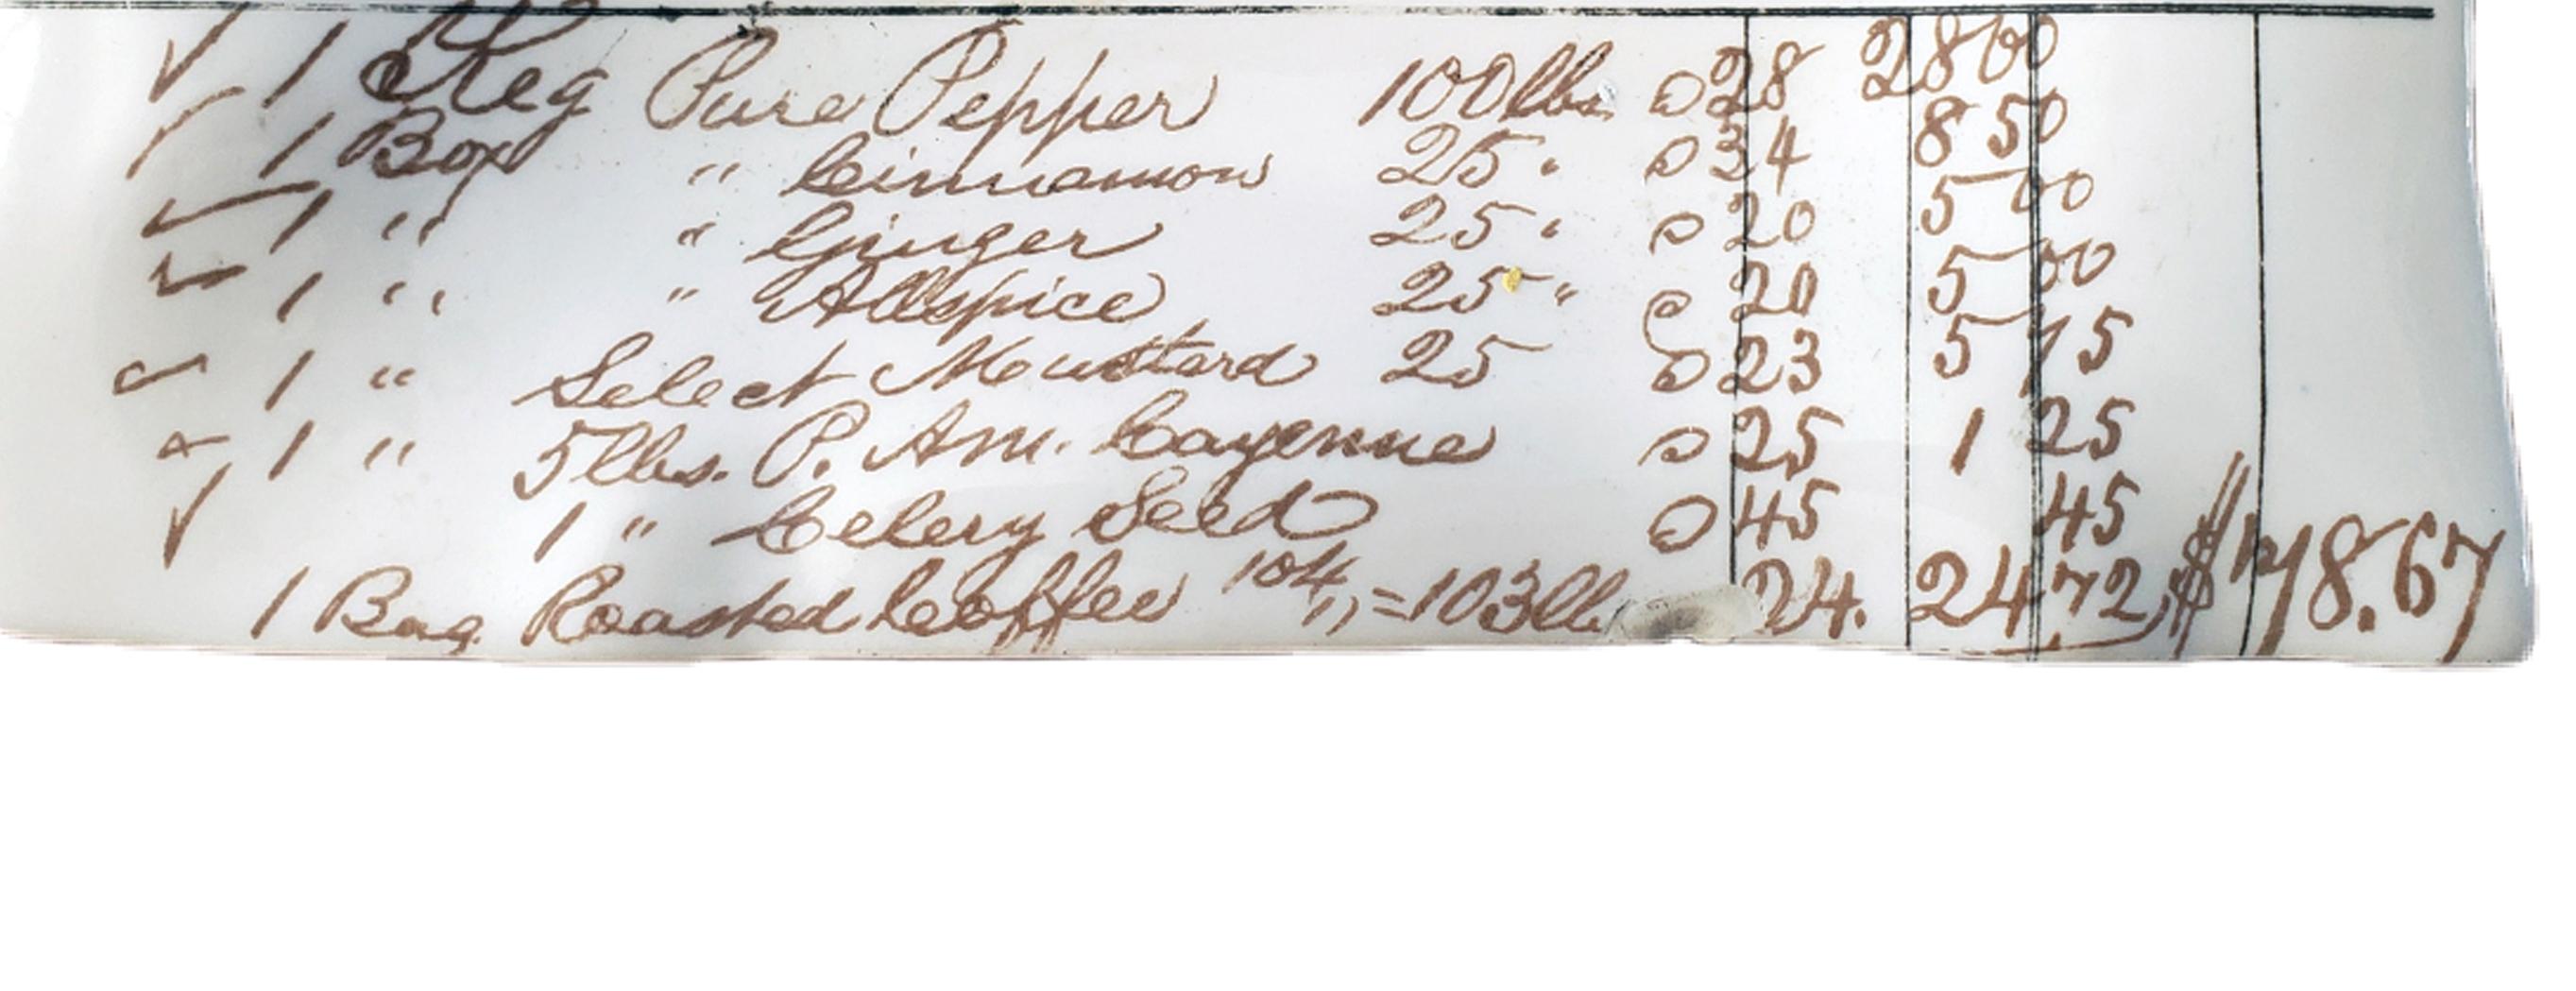 ✓ 1 Keg Pure Pepper 100 lbs @ 28 28 00
✓ 1 Box " Cinnamon 25 " @ 34 8 50
✓ 1 " " Ginger 25 " @ 20 5 00
✓ 1 " " Allspice 25 " @ 20 5 00
✓ 1 " Select Moustard 25 @ 23 5 75
✓ 1 " 5 lbs. P. Am. Cayenne @ 25 1 25
✓ 1 " Celery Seed @ 45 45
1 Bag Roasted Coffee 104/1 = 103 lb 24. 24 72 $78.67